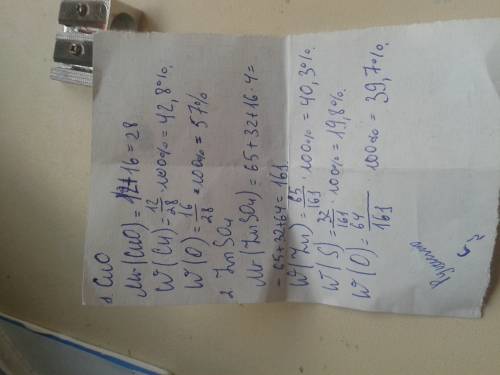 1. CuO
Mr (CuO) = 12+16 = 28
W (Cu) = 12/28 · 100% = 42,8%.
W (O) = 16/28 · 100% = 57%
2. ZnSO4
Mr (ZnSO4) = 65+32+16·4=
= 65+32+64 = 161.
W (Zn) = 65/161 · 100% = 40,3%.
W (S) = 32/161 · 100% = 19,8%.
W (O) = 64/161 100% = 39,7%.